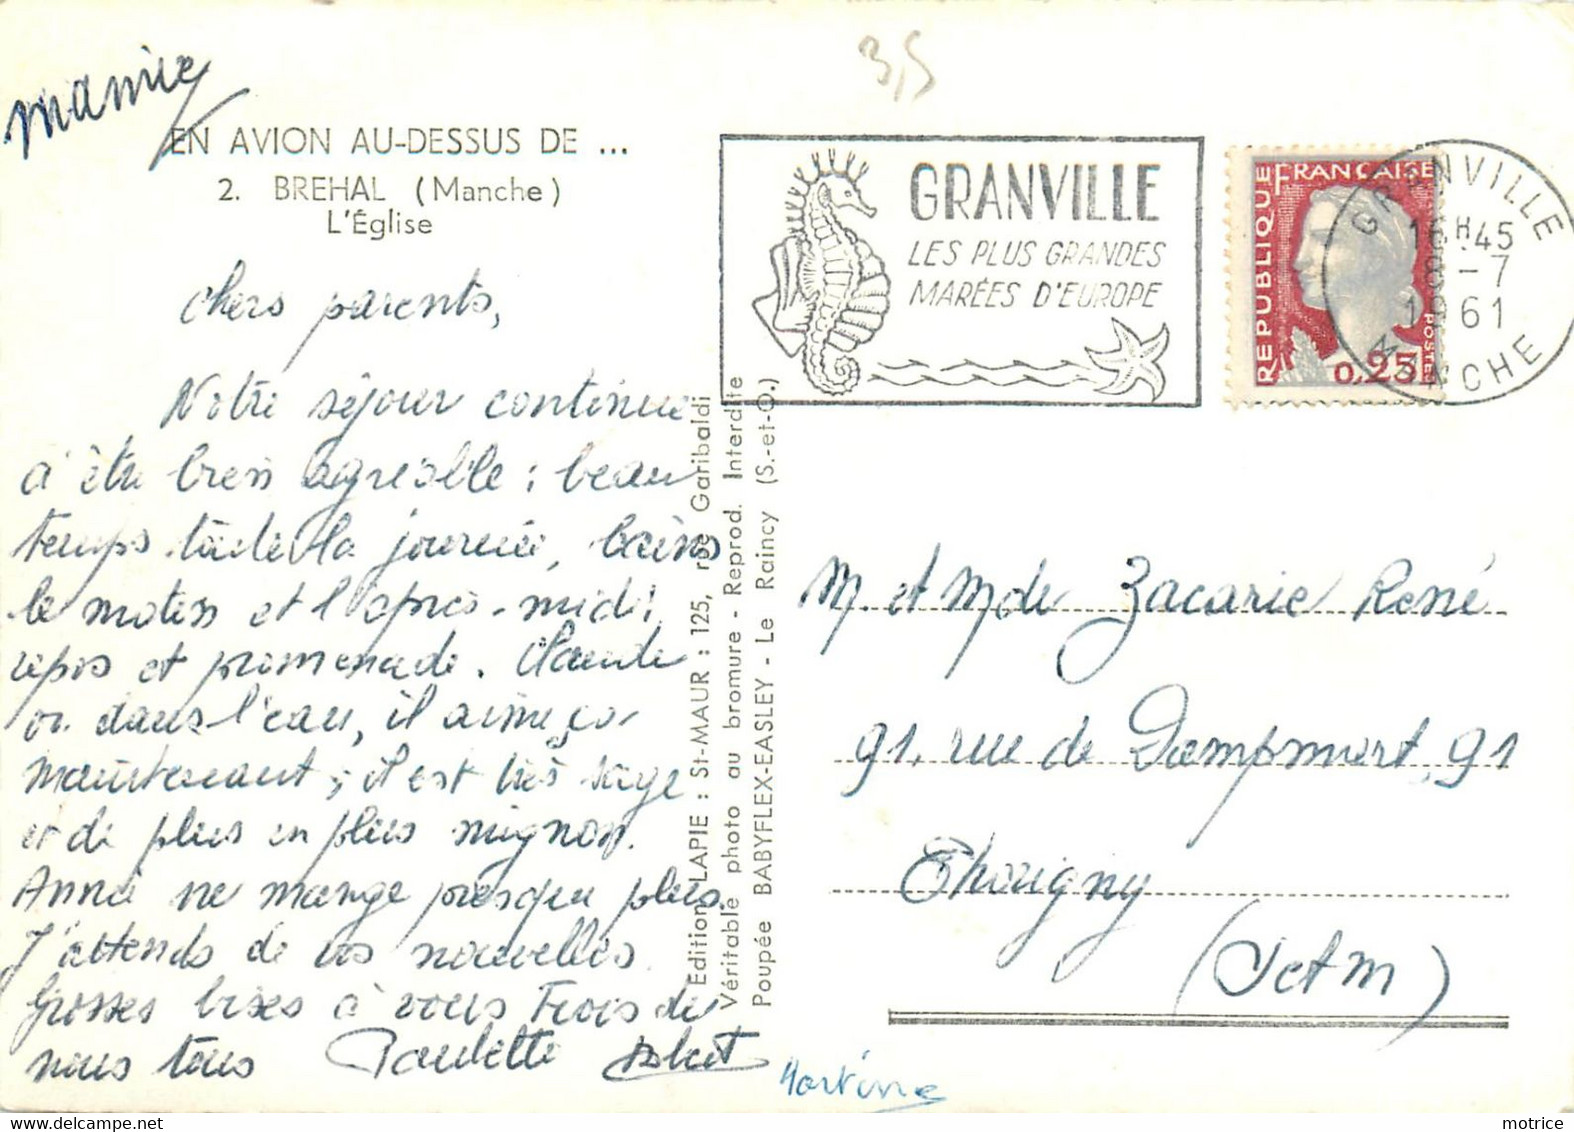 3,5
Mamie
EN AVION AU-DESSUS DE ...
2. BREHAL (Manche)
L'Église
GRANVILLE
LES PLUS GRANDES
MARÉES D'EUROPE
RÉPUBLIQUE FRANÇAISE
POSTES
0,25
GRANVILLE
16H45
8-7
1961
MANCHE
Chers parents,
Notre séjour continue
à être bien agréable ; beau
temps toute la journée, bains
le matin et l'après-midi,
repos et promenade. Claude
va dans l'eau, il aime ça
maintenant ; il est très sage
et de plus en plus mignon.
Anna ne mange presque plus.
J'attends de vos nouvelles.
Grosses bises à vous Trois de
nous tous Paulette
Martine
Edition LAPIE : St-MAUR : 125, rue Garibaldi
Véritable photo au bromure - Reprod. Interdite
Poupée BABYFLEX-EASLEY - Le Raincy (S.-et-O.)
M. et Mde Zacarie René
91, rue de Dampmart, 91
Thorigny
(S et M)
motrice